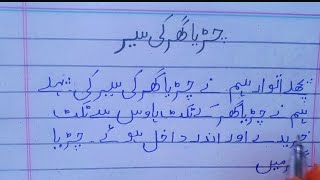 چڑیا گھر کی سیر
پچھلے اتوار ہم نے چڑیا گھر کی سیر کی۔ پہلے
ہم نے چڑیا گھر کے ٹکٹ ہاوس سے ٹکٹ
خریدے اور اندر داخل ہوئے۔ چڑیا
میں